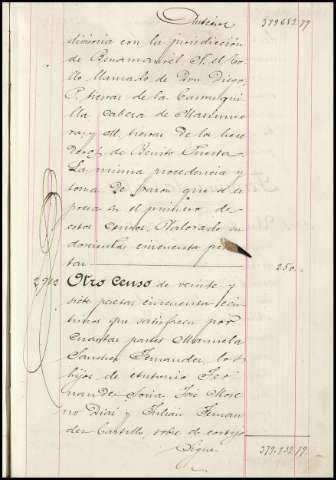 Anterior 379682.77
divisoria con la jurisdicción
de Benamaurel N. el Co-
llo llamado de Don Diego
P. tierras de la
lla cabeza de
ra, y M. tierras de la
de Benito Puerta.
La misma procedencia y
toma de razon que se es-
presa en el primero de
estos censos. Valorado en
doscientas cincuenta pese-
tas 250..
Otro Censo de veinte y
siete pesetas cincuenta cen-
timos que satisfacen por
cuartas partes Manuela
Sanchez Fernandez, los
hijos de Antonio Fer-
nandez Soria, José More-
no Diaz y Julián Fernan-
dez Castillo, sobre el cortijo
Sigue 379.932.77.